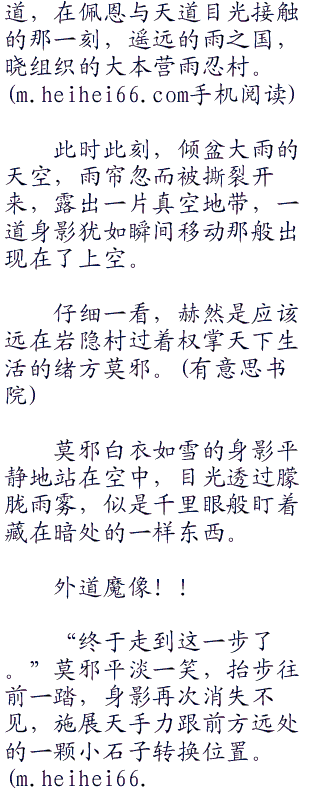 道，在佩恩与天道目光接触
的那一刻，遥远的雨之国，
晓组织的大本营雨忍村。
(m.heihei66.com手机阅读)
此时此刻，倾盆大雨的
天空，雨帘忽而被撕裂开
来，露出一片真空地带，一
道身影犹如瞬间移动那般出
现在了上空。
仔细一看，赫然是应该
远在岩隐村过着权掌天下生
活的绪方莫邪。(有意思书
院)
莫邪白衣如雪的身影平
静地站在空中，目光透过朦
胧雨雾，似是千里眼般盯着
藏在暗处的一样东西。
外道魔像！！
“终于走到这一步了
。”莫邪平淡一笑，抬步往
前一踏，身影再次消失不
见，施展天手力跟前方远处
的一颗小石子转换位置。
(m.heihei66.